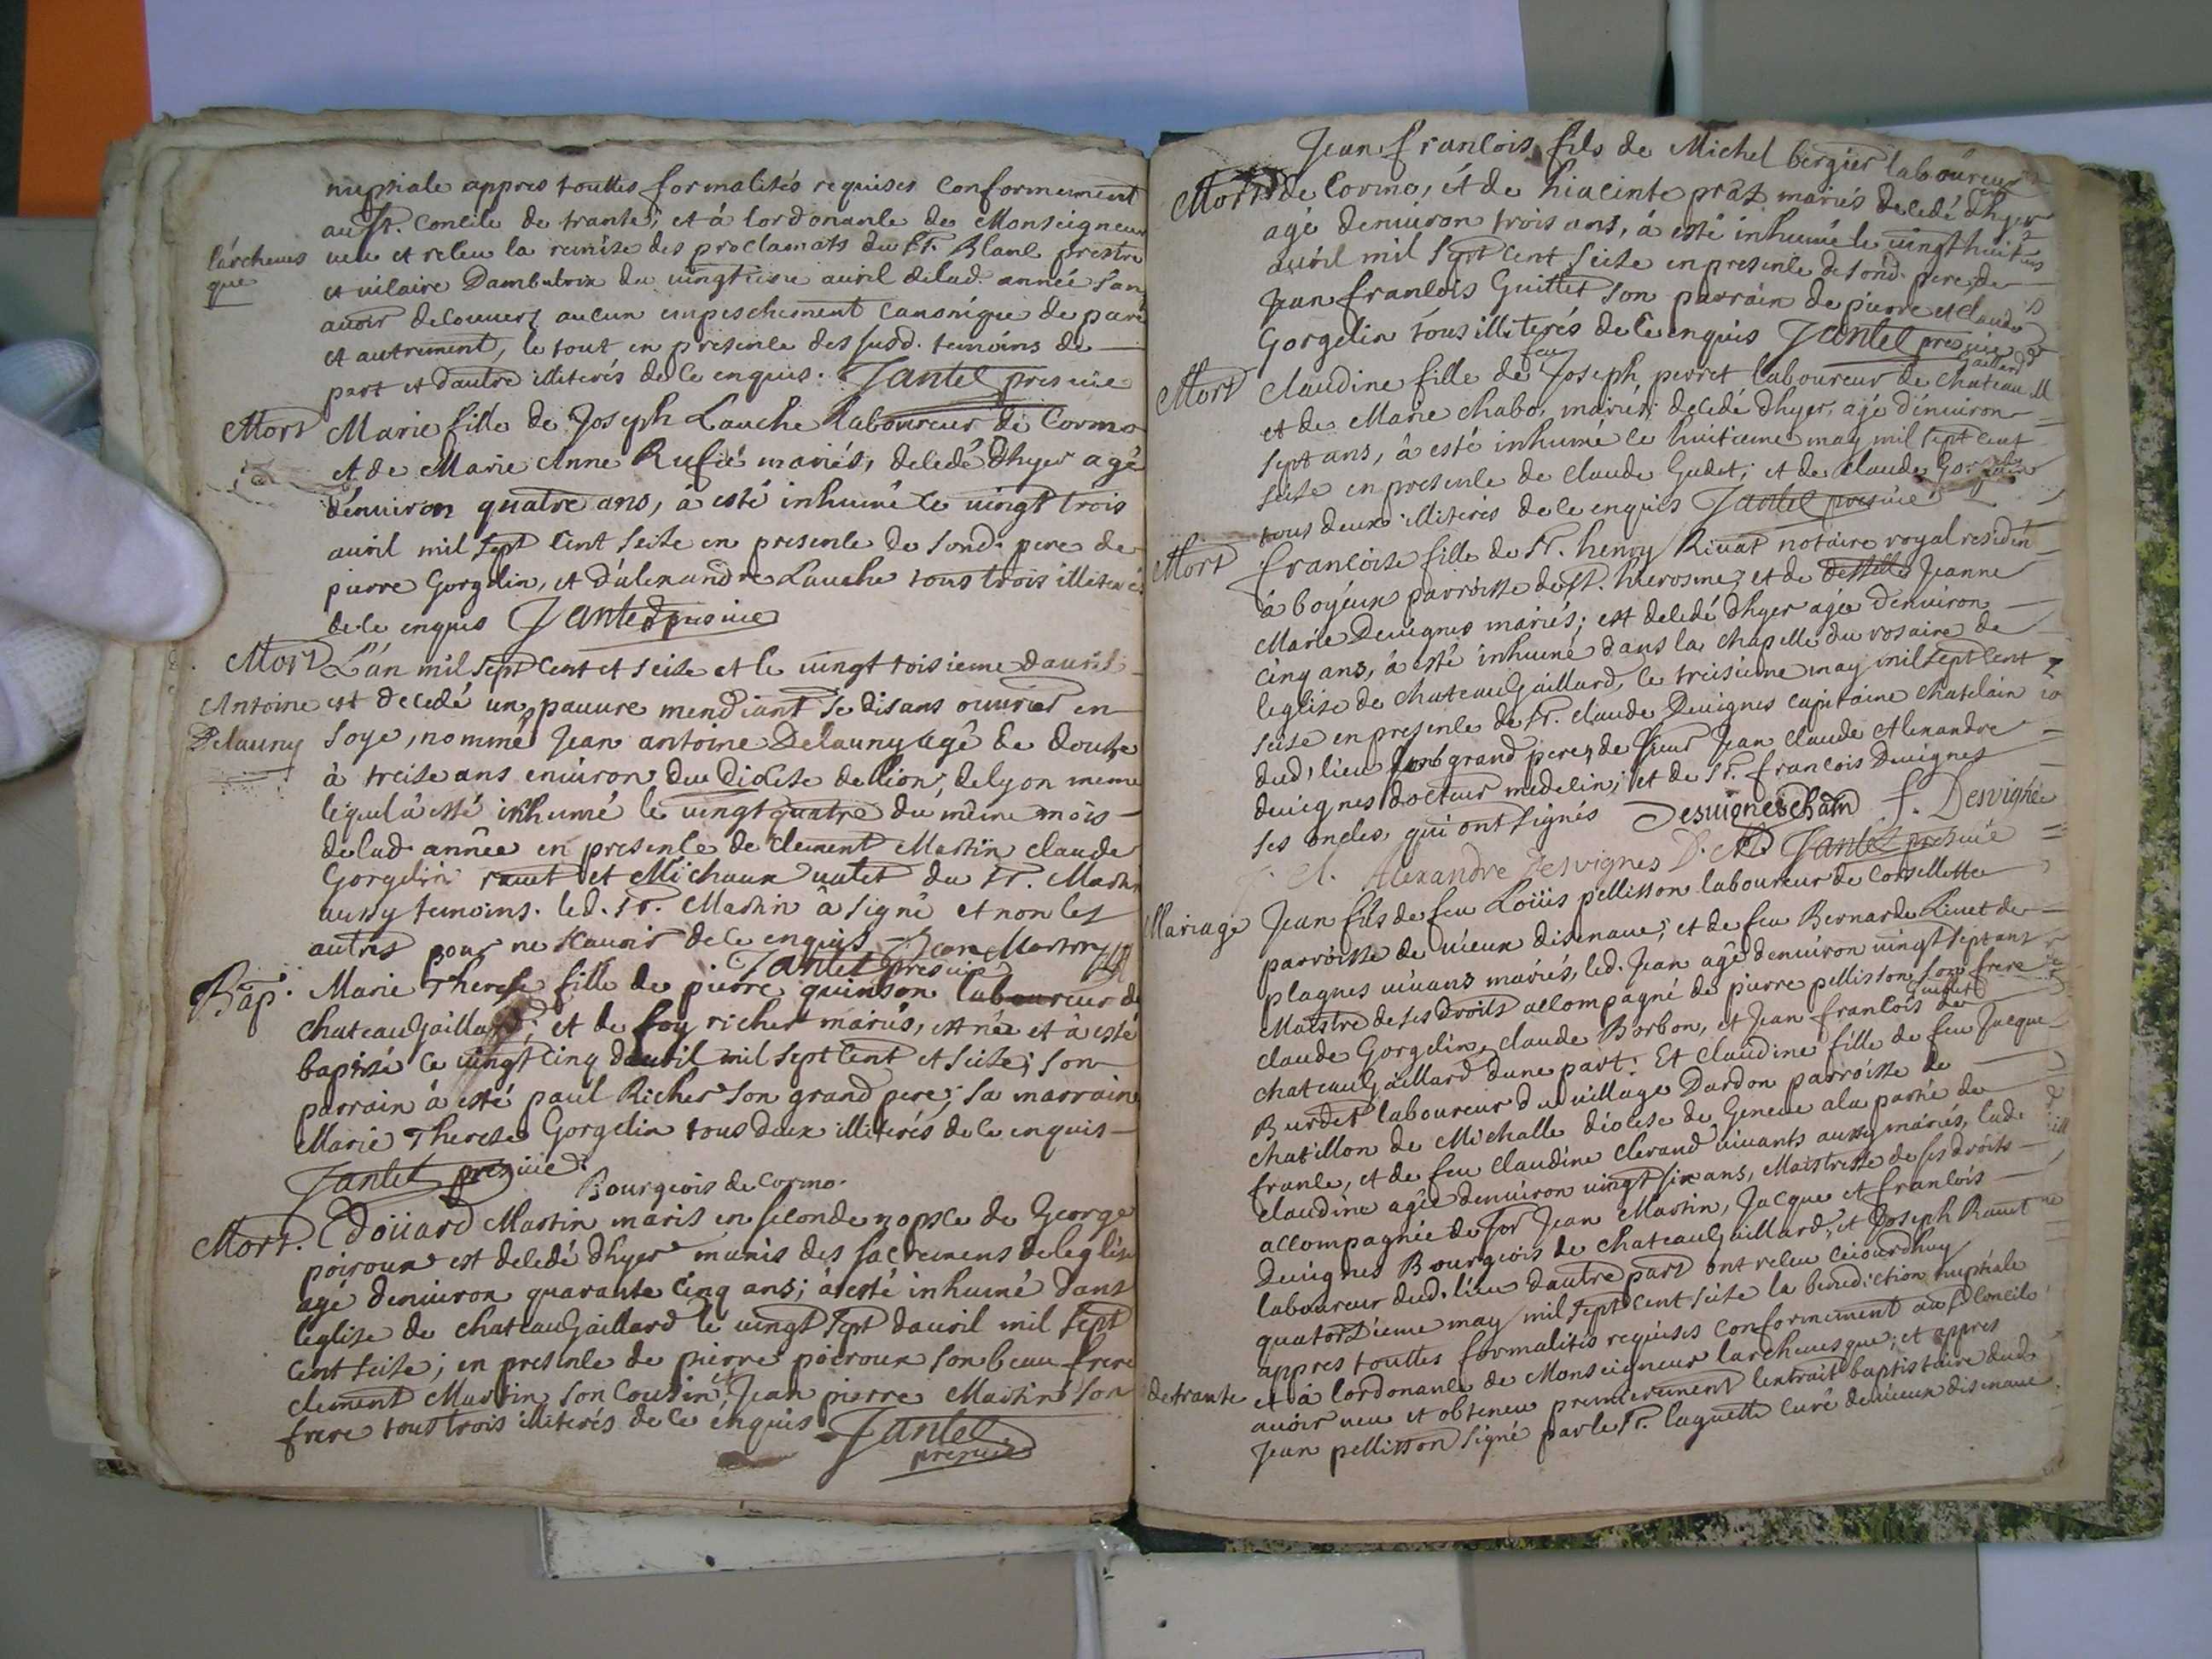 nuptiale appres touttes formalités requises conformement
au st. Concile de trante, et á lordonance de Monseigneur
l'archeues
que
veu et releu la remise des proclamats du Sr. Blanc prestre
et vicaire Dambutrix du vingt uieme auril delad. année san
auoir decouuert aucun empeschement canonique de part
et autrement, le tout en presence des susd. temoins de
part et d'autre illiterés de ce enquis. Jantet pres uic
Mort
Marie fille de Joseph Lauche Laboureur de Cormo
et de Marie Anne Rufié mariés, decedé dhyer agé
d'enuiron quatre ans, à esté inhumé le uingt trois
auril mil sept cent seise en presence de sond. pere de
pierre Gorgelin, et d'alexandre Lauche tous trois illiterés
de ce enquis Jantet pres uic
Mort
L'an mil sept cent et seise et le uingt toisieme dauril
Antoine
Delauny
est decedé un pauure mendiant se disans ouurier en
soye, nommé Jean antoine Delauny agé de douse
à treise ans enuiron du diocese de lion, de lyon meme
lequel à esté inhumé le uingt quatre du même mois
delad. année en presence de clement Martin claude
Gorgelin rauet et Michaux ualet du Sr. Martin
aussy temoins. led. Sr. Martin à signé et non les
autres pour ne scauoir de ce enquis Jean Martin
Jantet pres uic
Bap.
Marie Therese fille de pierre quinson laboureur de
chateauGaillard, et de foy richer mariés, est née et à esté
baptisé ce uingt cinq dauril mil sept cent et seise; son
parrain à esté paul Richer son grand pere; sa marraine
Marie Therese Gorgelin tous deux illiterés de ce enquis
Jantet pres uic
Bourgeois de Cormo.
Mort.
Edoüard Martin maris en seconde nopsce de George
poiroux est decedé dhyer munis des sacremens de leglise
agé denuiron quarante cinq ans; à esté inhumé dans
leglise de chateauGaillard le uingt sept dauril mil sept
cent seise; en presence de pierre poiroux son beau frere
clement Martin son cousin, Jean pierre Martin son
frere tous trois illiterés de ce enquis Jantet
pres uic
Jean francois fils de Michel bergier laboureur
Mort
de Cormo, ét de hiacinte prat mariés decedé dhyer
agé denuiron trois ans, à esté inhumé le uingt huit
auril mil sept cent seise en presence de sond. pere de
Jean francois Guittet son parrain de pierre et claude
Gorgelin tous illiterés de ce enquis Jantet pres uic
Mort
Claudine fille de feu Joseph perret laboureur de chateau Gaillard
et de Marie chabo, mariés; decedé dhyer, agé d'enuiron
sept ans, à esté inhumé le huitieme may mil sept cent
seise en presence de claude Gudet, et de claude Gorgelin
tous deux illiterés de ce enquis Jantet pres uic
Mort
francoise fille de Sr. henry Riuat notaire royal residen
à boyeux parroisse de St. hierosme, et de Jeanne
Marie Deuignes mariés; est decedé dhyer agée denuiron
cinq ans, à esté inhumé dans la chapelle du rosaire de
leglise de chateauGaillard, le treisieme may mil sept cent
seise en presence de Sr. claude Deuignes capitaine chatelain
dud. lieu son grand pere, de sieur Jean claude Alexandre
deuignes docteur medecin; et de Sr. francois Deuignes
ses oncles qui ont signés Desuignes chàn f. Desvignes
J. C. Alexandre Desvignes D. M. Jantet pres uic
Mariage
Jean fils de feu Loüis pellisson laboureur de Corcellette
parroisse de uieux disenaue, et de feu Bernarde Liuet de
plagnes uiuans mariés, led. Jean agé denuiron uingt sept ans
Maistre de ses droits accompagné de pierre pellisson son frere
claude Gorgelin, claude Borbon, et Jean francois Guittet de
chateauGaillard dune part: Et claudine fille de feu Jacque
Burdet laboureur du uillage Dardon parroisse de
chatillon de Michalle diocese de Geneue ala partie de
france, et de feu claudine clerand uiuants aussy mariés, lad.
claudine agée denuiron uingt six ans, Maistresse de ses droits
accompagnée de sor Jean Martin, Jacque et francois
Deuignes Bourgeois de chateauGaillard, et Joseph Rauet
laboureur dud. lieu dautre part ont releu ceiourdhuy
quatorsieme may mil sept cent seise la benediction nuptiale
appres touttes formalités requises conformement au st. Concile
de trante et à lordonance de Monseigneur larcheuesque; et appres
auoir ueu et obteneu premierement lentrait baptistaire dud.
Jean pellisson signé par le Sr. laguette curé de uieux disenaue